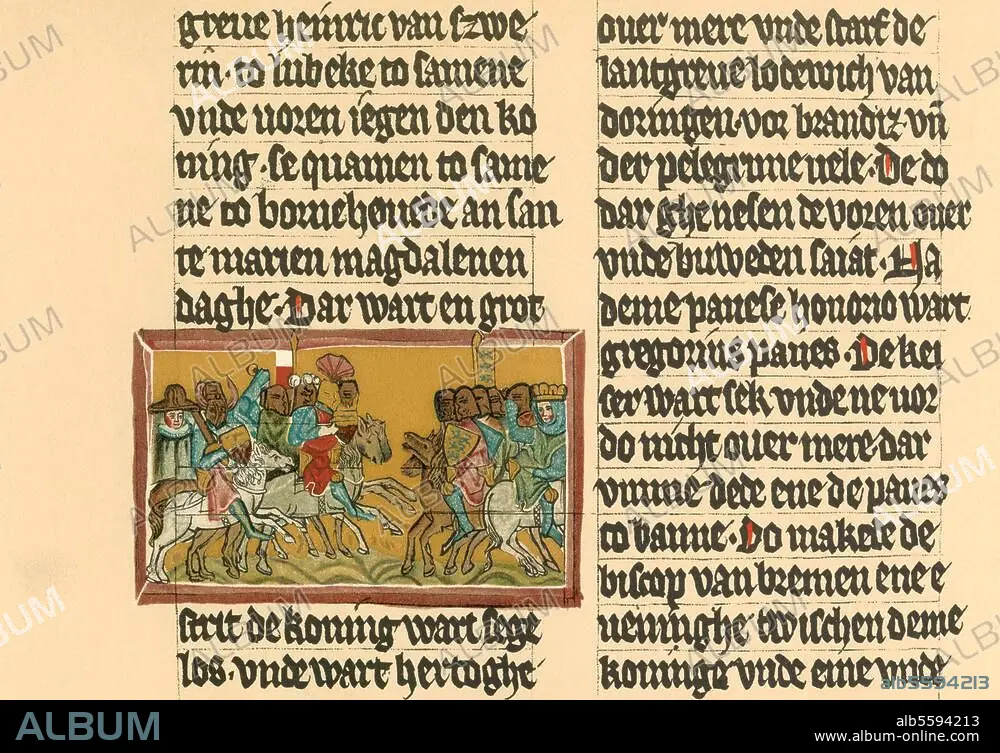 greue heinric van szwe
rin · to lubeke to samene
vnde uoren iegen den ko
ning · se quamen to same
ne to bornehouede an san
te marien magdalenen
daghe · Dar wart en grot
strit de koning wart sege
los · vnde wart hertoghe
ouer mere vnde starf de
lantgreue lodewich van
doringen · vor brandiz · vn̄
der pelegrime uele · De do
dar ghenesen de voren ouer
vnde buweden saiat · Na
deme paues honorio wart
gregorius paues · De kei
ser wart sek vnde ne uor
do nicht ouer mere · dar
vmme dede ene de paues
to banne · Do makete de
biscop van bremen ene e
ueninghe twischen deme
koninge vnde eme vnde
ALBUM
alb5594213
www.album-online.com